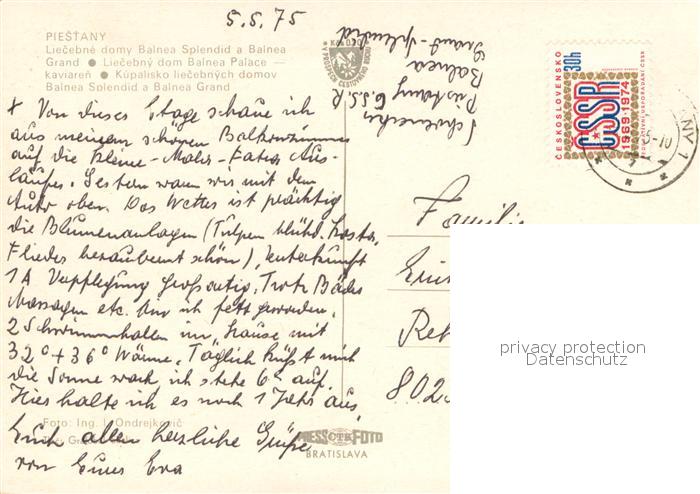 5.5.75
PIEŠŤANY
Liečebné domy Balnea Splendid a Balnea
Grand ● Liečebný dom Balnea Palace —
kaviareň ● Kúpalisko liečebných domov
Balnea Splendid a Balnea Grand
x Von dieser Etage schaue ich
aus meinem schönen Balkonzimmer
auf die Kleine-Malor-Fatra Aus-
läufer. Gestern waren wir mit dem
Auto oben. Das Wetter ist prächtig
die Blumenanlagen (Tulpen blühd.
Flieder beraubernt schön), Unterkunft
1A Verpflegung großartig, Trotz Bäder
Massagen etc. bin ich fett geworden.
2 Schwimmhallen im Hause mit
32° + 36° Wärme. Täglich küßt mich
die Sonne wach, ich stehe 6h auf.
Hier halte ich es noch 1 Jahr aus.
Euch allen herzliche Grüße
von Eurer Eva
Foto: Ing. J. Ondrejkovič
PRESSFOTO
ČTK
BRATISLAVA
Balnea
Grand-Splendid
ČSSR
ČESKOSLOVENSKO
30h
ČSSR
1969-1974
Familie
802
privacy protection
Datenschutz